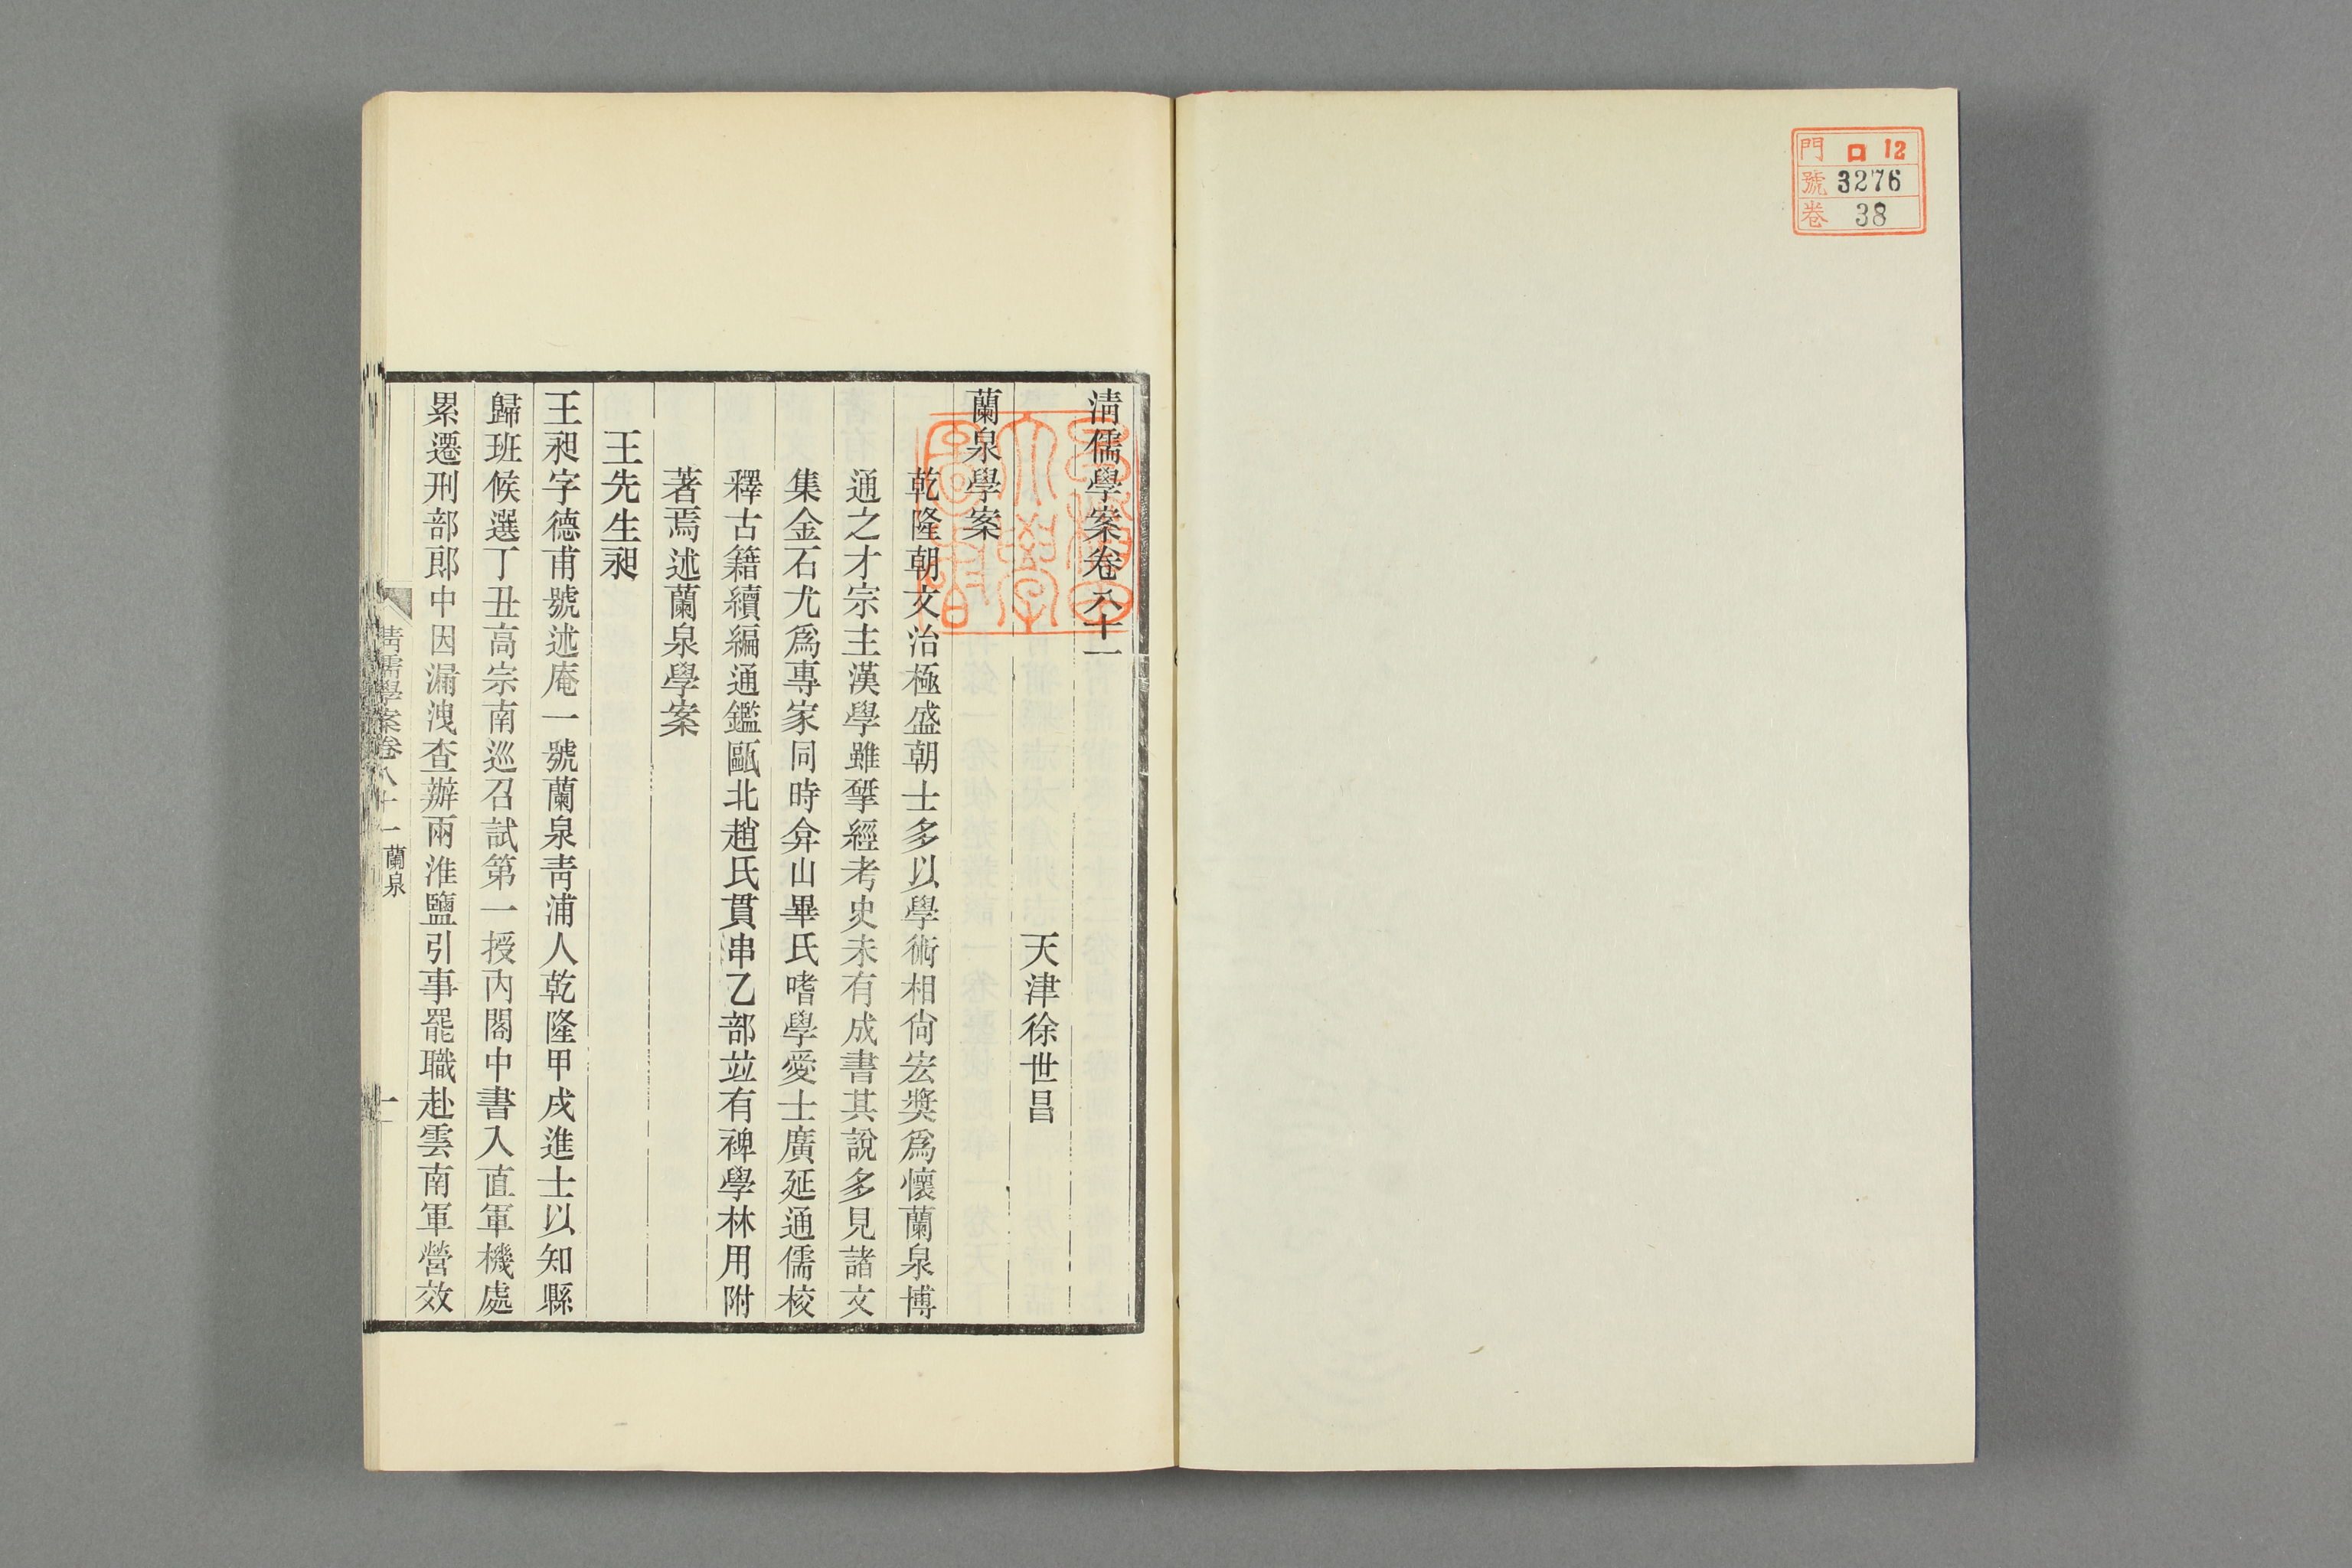 門 ロ 12
號 3276
卷 38
淸儒學案卷八十一
天津徐世昌
蘭泉學案
乾隆朝文治極盛朝士多以學術相尙宏獎爲懷蘭泉博
通之才宗主漢學雖揅經考史未有成書其說多見諸文
集金石尤爲專家同時弇山畢氏嗜學愛士廣延通儒校
釋古籍續編通鑑甌北趙氏貫串乙部竝有裨學林用附
著焉述蘭泉學案
王先生昶
王昶字德甫號述庵一號蘭泉靑浦人乾隆甲戌進士以知縣
歸班候選丁丑高宗南巡召試第一授內閣中書入直軍機處
累遷刑部郎中因漏洩查辦兩淮鹽引事罷職赴雲南軍營效
淸儒學案卷八十一 蘭泉
一